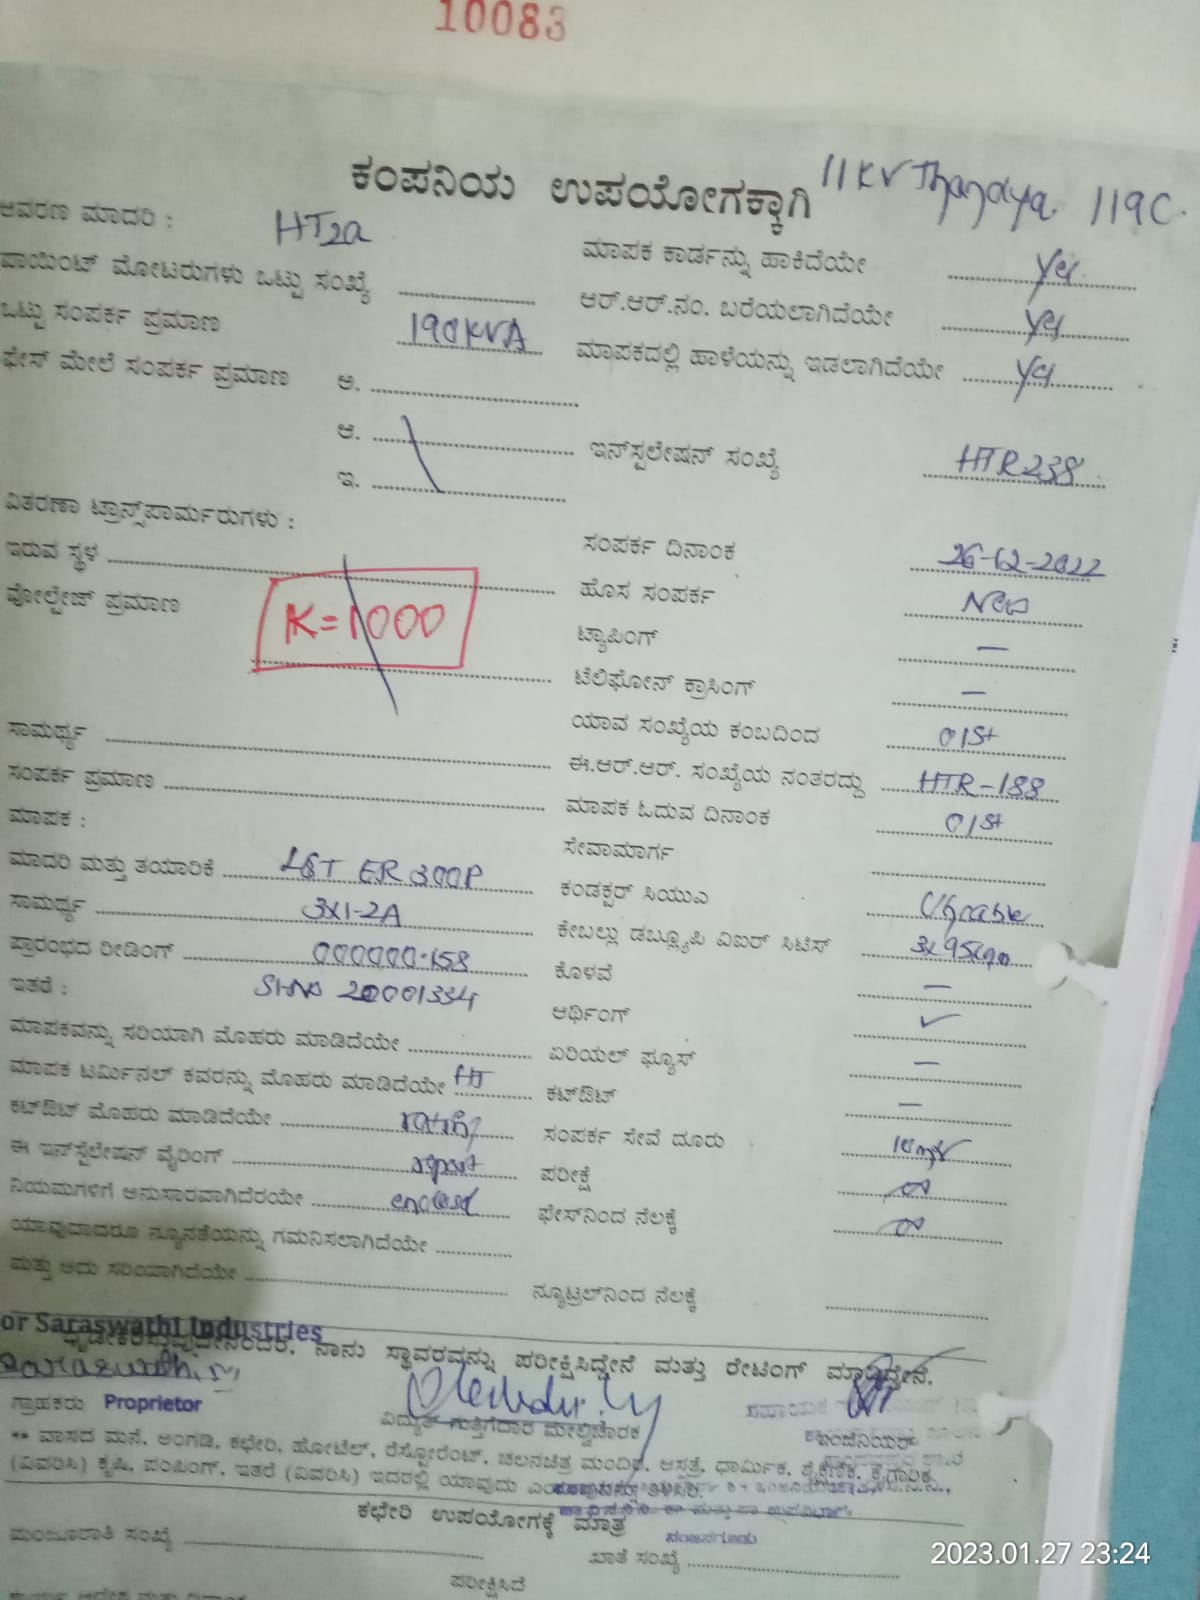 10083
ಕಂಪನಿಯ ಉಪಯೋಗಕ್ಕಾಗಿ 11KV Thandya 119C.
ಆವರಣ ಮಾದರಿ : HT2a
ಮಾಪಕ ಕಾರ್ಡನ್ನು ಹಾಕಿದೆಯೇ Yes
ಪಾಯಿಂಟ್ ಮೋಟರುಗಳು ಒಟ್ಟು ಸಂಖ್ಯೆ
ಆರ್.ಆರ್.ನಂ. ಬರೆಯಲಾಗಿದೆಯೇ Yes
ಒಟ್ಟು ಸಂಪರ್ಕ ಪ್ರಮಾಣ 190KVA
ಮಾಪಕದಲ್ಲಿ ಹಾಳೆಯನ್ನು ಇಡಲಾಗಿದೆಯೇ Yes
ಫೇಸ್ ಮೇಲೆ ಸಂಪರ್ಕ ಪ್ರಮಾಣ ಅ.
ಆ.
ಇನ್‌ಸ್ಪಲೇಷನ್ ಸಂಖ್ಯೆ HTR238
ಇ.
ವಿತರಣಾ ಟ್ರಾನ್ಸ್‌ಪಾರ್ಮರುಗಳು :
ಸಂಪರ್ಕ ದಿನಾಂಕ 26-12-2022
ಇರುವ ಸ್ಥಳ
ಹೊಸ ಸಂಪರ್ಕ New
ವೋಲ್ಟೇಜ್ ಪ್ರಮಾಣ K=1000
ಟ್ಯಾಪಿಂಗ್ —
ಟೆಲಿಫೋನ್ ಕ್ರಾಸಿಂಗ್ —
ಯಾವ ಸಂಖ್ಯೆಯ ಕಂಬದಿಂದ 01st
ಸಾಮರ್ಥ್ಯ
ಈ.ಆರ್.ಆರ್. ಸಂಖ್ಯೆಯ ನಂತರದ್ದು HTR-188
ಸಂಪರ್ಕ ಪ್ರಮಾಣ
ಮಾಪಕ ಓದುವ ದಿನಾಂಕ 01st
ಮಾಪಕ :
ಸೇವಾಮಾರ್ಗ
ಮಾದರಿ ಮತ್ತು ತಯಾರಿಕೆ L&T ER300P
ಕಂಡಕ್ಟರ್ ಸಿಯುಎ UGcable
ಸಾಮರ್ಥ್ಯ 3X1-2A
ಕೇಬಲ್ಲು ಡಬ್ಲ್ಯೂಪಿ ವಿಐರ್ ಸಿಟಿಸ್ 3x95sqm
ಪ್ರಾರಂಭದ ರೀಡಿಂಗ್ 000000.158
ಕೊಳವೆ —
ಇತರೆ : Sl.No 20001334
ಆರ್ಥಿಂಗ್ ✓
ಮಾಪಕವನ್ನು ಸರಿಯಾಗಿ ಮೊಹರು ಮಾಡಿದೆಯೇ
ಏರಿಯಲ್ ಫ್ಯೂಸ್ —
ಮಾಪಕ ಟರ್ಮಿನಲ್ ಕವರನ್ನು ಮೊಹರು ಮಾಡಿದೆಯೇ HT
ಕಟ್‌ಔಟ್ —
ಕಟ್‌ಔಟ್ ಮೊಹರು ಮಾಡಿದೆಯೇ rating
ಸಂಪರ್ಕ ಸೇವೆ ದೂರು
ಈ ಇನ್‌ಸ್ಪೆಲೇಷನ್ ವೈರಿಂಗ್ report
ಪರೀಕ್ಷೆ
ನಿಯಮಗಳಿಗೆ ಅನುಸಾರವಾಗಿದೆರಯೇ enclosed
ಫೇಸ್‌ನಿಂದ ನೆಲಕ್ಕೆ
ಯಾವುದಾದರೂ ನ್ಯೂನತೆಯನ್ನು ಗಮನಿಸಲಾಗಿದೆಯೇ
ಮತ್ತು ಅದು ಸರಿಯಾಗಿದೆಯೇ
ನ್ಯೂಟ್ರಲ್‌ನಿಂದ ನೆಲಕ್ಕೆ
or Saraswathi Industries
ನಾನು ಸ್ಥಾವರವನ್ನು ಪರೀಕ್ಷಿಸಿದ್ದೇನೆ ಮತ್ತು ರೇಟಿಂಗ್ ಮಾಡಿದ್ದೇನೆ.
ಗ್ರಾಹಕರು Proprietor
ವಿದ್ಯುತ್ ಗುತ್ತಿಗೆದಾರ ಮೇಲ್ವಿಚಾರಕ
ಇಂಜಿನಿಯರ್
** ವಾಸದ ಮನೆ, ಅಂಗಡಿ, ಕಛೇರಿ, ಹೋಟೆಲ್, ರೆಸ್ಟೋರೆಂಟ್, ಚಲನಚಿತ್ರ ಮಂದಿರ, ಆಸ್ಪತ್ರೆ, ಧಾರ್ಮಿಕ, ಶೈಕ್ಷಣಿಕ, ಕೈಗಾರಿಕ
(ವಿವರಿಸಿ) ಕೃಷಿ, ಪಂಪಿಂಗ್, ಇತರೆ (ವಿವರಿಸಿ) ಇದರಲ್ಲಿ ಯಾವುದು
ಕಛೇರಿ ಉಪಯೋಗಕ್ಕೆ ಮಾತ್ರ
ಮಂಜೂರಾತಿ ಸಂಖ್ಯೆ
ಖಾತೆ ಸಂಖ್ಯೆ
ಪರೀಕ್ಷಿಸಿದೆ
2023.01.27 23:24